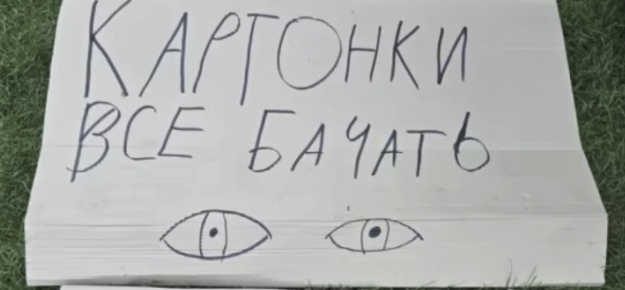 КАРТОНКИ
ВСЕ БАЧАТЬ